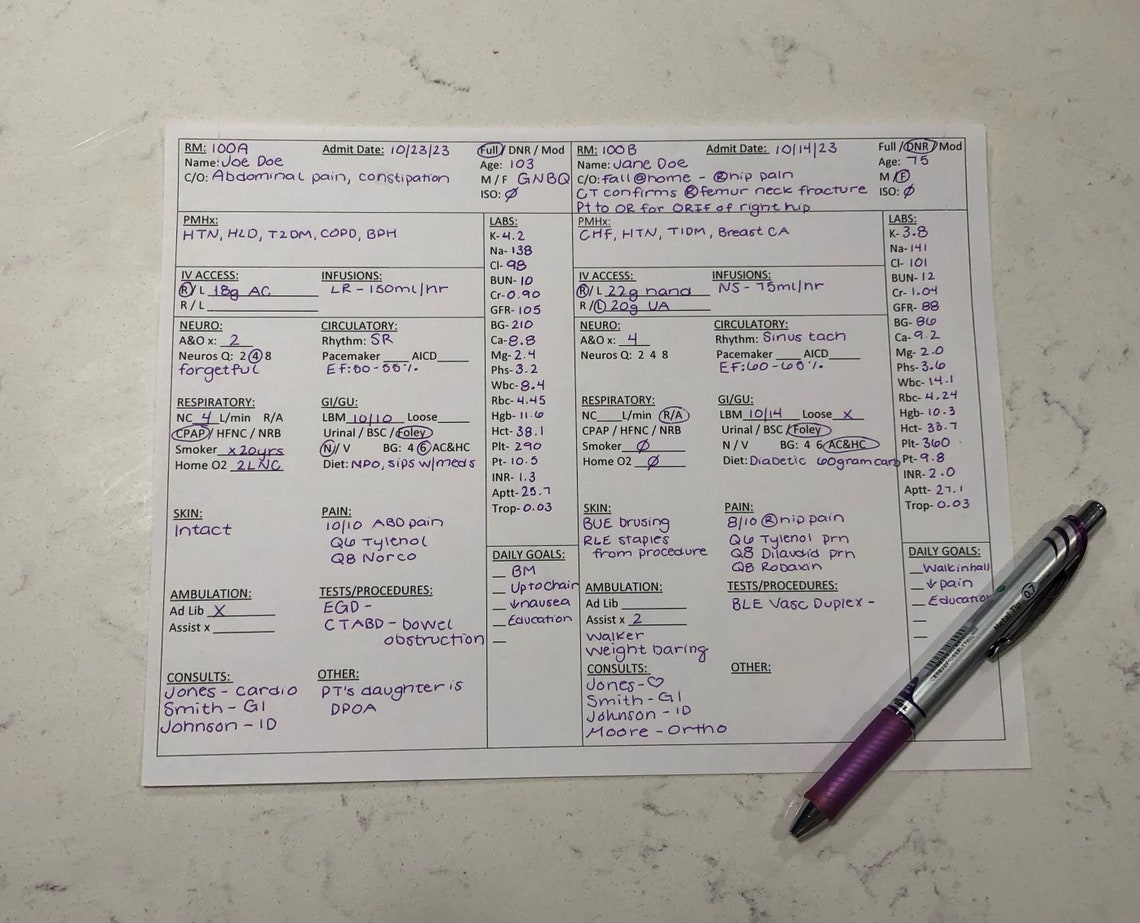 RM: 100A Admit Date: 10/23/23 Full / DNR / Mod
Name: Joe Doe Age: 103
C/O: Abdominal pain, constipation M / F GNBQ
ISO: Ø
PMHx:
HTN, HLD, T2DM, COPD, BPH
IV ACCESS: INFUSIONS:
R / L 18g AC LR - 150ml/hr
R / L
NEURO: CIRCULATORY:
A&O x: 2 Rhythm: SR
Neuros Q: 2 4 8 Pacemaker AICD
forgetful EF: 50-55%
RESPIRATORY: GI/GU:
NC 4 L/min R/A LBM 10/10 Loose
CPAP / HFNC / NRB Urinal / BSC / Foley
Smoker x20yrs N / V BG: 4 6 AC&HC
Home O2 2LNC Diet: NPO, sips w/meds
SKIN: PAIN:
Intact 10/10 ABD pain
Q6 Tylenol
Q8 Norco
AMBULATION: TESTS/PROCEDURES:
Ad Lib X EGD -
Assist x CTABD - bowel
obstruction
CONSULTS: OTHER:
Jones - cardio PT's daughter is
Smith - GI DPOA
Johnson - ID
LABS:
K- 4.2
Na- 138
Cl- 98
BUN- 10
Cr- 0.90
GFR- 105
BG- 210
Ca- 8.8
Mg- 2.4
Phs- 3.2
Wbc- 8.4
Rbc- 4.45
Hgb- 11.6
Hct- 38.1
Plt- 290
Pt- 10.5
INR- 1.3
Aptt- 25.7
Trop- 0.03
DAILY GOALS:
BM
Up to chair
↓nausea
Education
RM: 100B Admit Date: 10/14/23 Full / DNR / Mod
Name: Jane Doe Age: 75
C/O: fall @ home - Ⓡ hip pain M / F
CT confirms Ⓡ femur neck fracture ISO: Ø
Pt to OR for ORIF of right hip
PMHx:
CHF, HTN, T1DM, Breast CA
IV ACCESS: INFUSIONS:
R / L 22g hand NS - 75ml/hr
R / L 20g UA
NEURO: CIRCULATORY:
A&O x: 4 Rhythm: Sinus tach
Neuros Q: 2 4 8 Pacemaker AICD
EF: 60-65%
RESPIRATORY: GI/GU:
NC L/min R/A LBM 10/14 Loose x
CPAP / HFNC / NRB Urinal / BSC / Foley
Smoker Ø N / V BG: 4 6 AC&HC
Home O2 Ø Diet: Diabetic 60gram carb
SKIN: PAIN:
BUE brusing 8/10 Ⓡ hip pain
RLE staples Q6 Tylenol prn
from procedure Q8 Dilaudid prn
Q8 Robaxin
AMBULATION: TESTS/PROCEDURES:
Ad Lib BLE Vasc Duplex -
Assist x 2
Walker
Weight baring
CONSULTS: OTHER:
Jones - ♡
Smith - GI
Johnson - ID
Moore - Ortho
LABS:
K- 3.8
Na- 141
Cl- 101
BUN- 12
Cr- 1.04
GFR- 88
BG- 86
Ca- 9.2
Mg- 2.0
Phs- 3.6
Wbc- 14.1
Rbc- 4.24
Hgb- 10.3
Hct- 33.7
Plt- 360
Pt- 9.8
INR- 2.0
Aptt- 27.1
Trop- 0.03
DAILY GOALS:
Walk in hall
↓ pain
Education
0.7